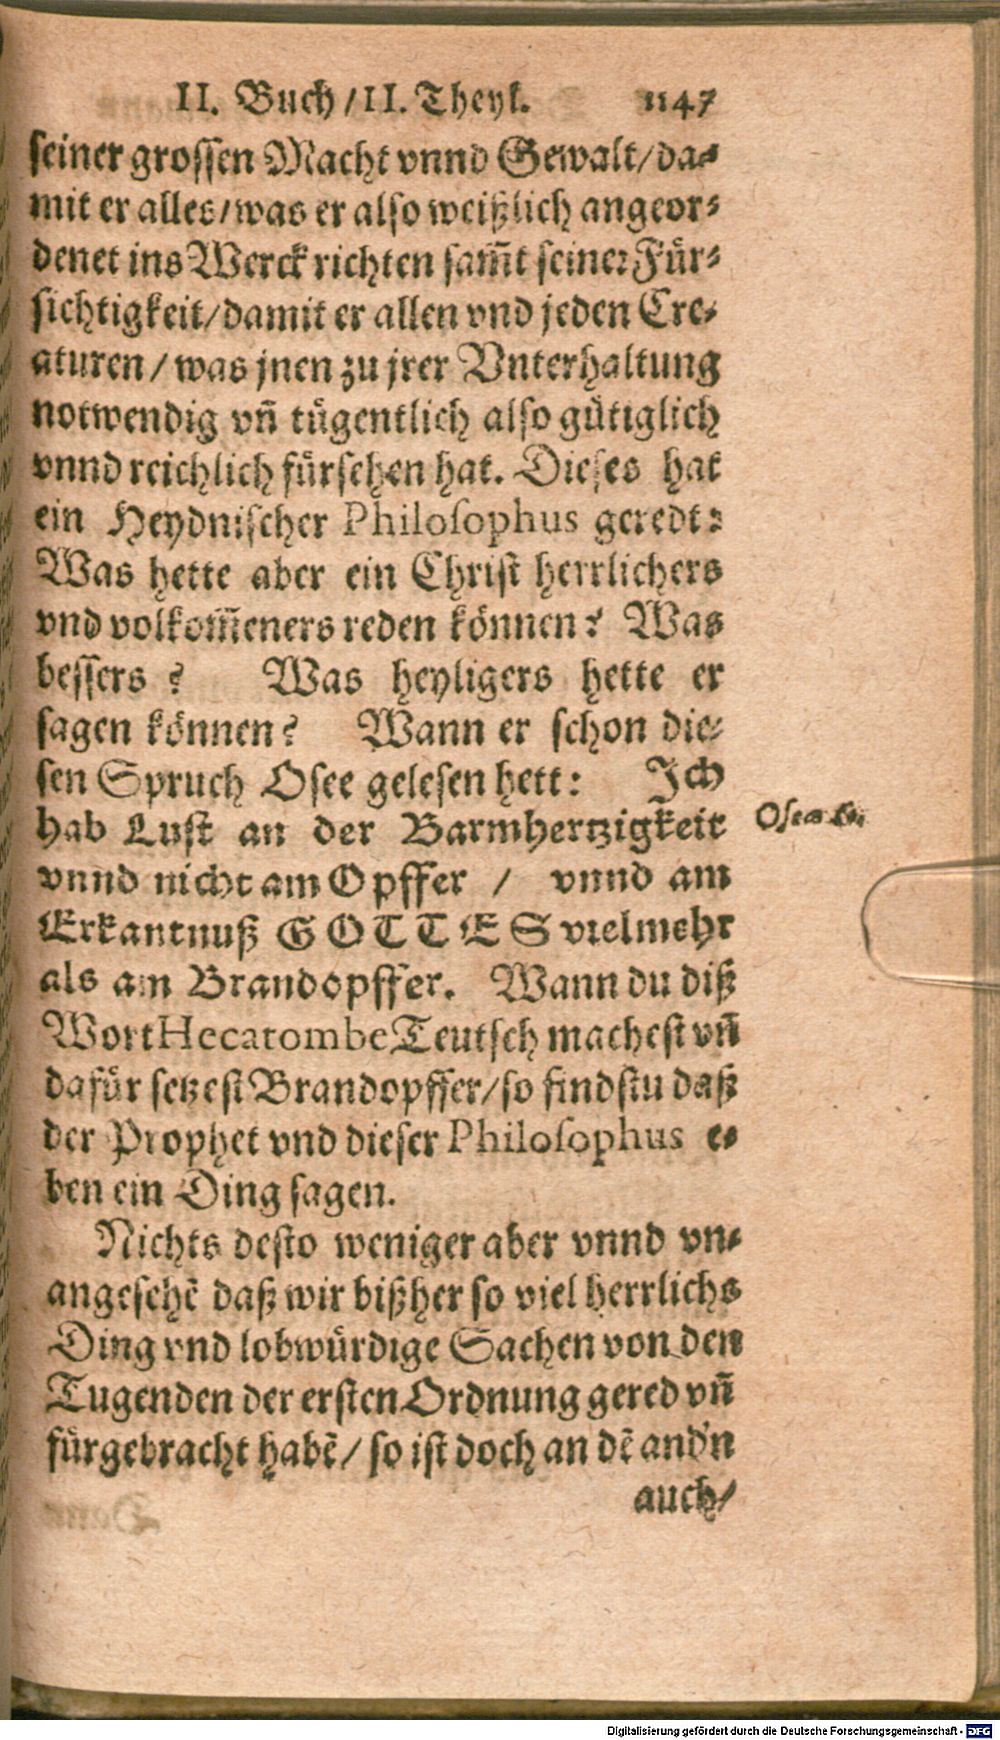 II. Buch / II. Theyl. 1147
seiner grossen Macht vnnd Gewalt / da-
mit er alles / was er also weißlich angeor-
denet ins Werck richten sam̃t seiner Für-
sichtigkeit / damit er allen vnd jeden Cre-
aturen / was jnen zu jrer Vnterhaltung
notwendig vñ tügentlich also gütiglich
vnnd reichlich fürsehen hat. Dieses hat
ein Heydnischer Philosophus geredt:
Was hette aber ein Christ herrlichers
vnd volkom̃eners reden können? Was
bessers? Was heyligers hette er
sagen können? Wann er schon die-
sen Spruch Osee gelesen hett: Ich
hab Lust an der Barmhertzigkeit
Osea 6.
vnnd nicht am Opffer / vnnd am
Erkantnuß GOTTES vielmehr
als am Brandopffer. Wann du diß
Wort Hecatombe Teutsch machest vñ
dafür setzest Brandopffer / so findstu daß
der Prophet vnd dieser Philosophus e-
ben ein Ding sagen.
Nichts desto weniger aber vnnd vn-
angesehẽ daß wir bißher so viel herrlichs
Ding vnd lobwürdige Sachen von den
Tugenden der ersten Ordnung gered vñ
fürgebracht habẽ / so ist doch an dẽ and'n
auch /
Digitalisierung gefördert durch die Deutsche Forschungsgemeinschaft - DFG